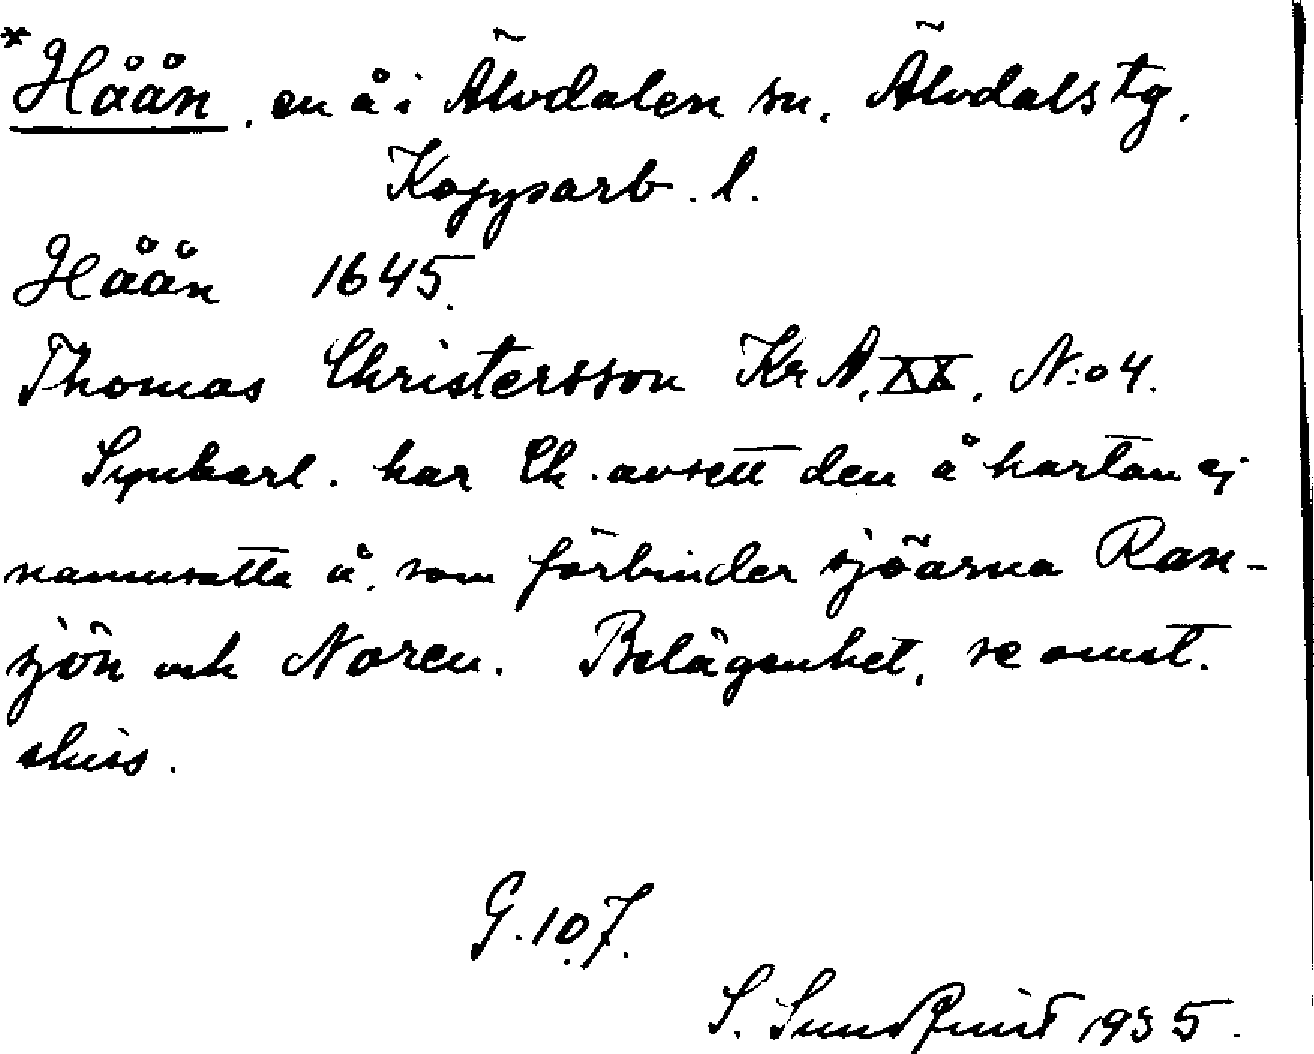 *Håån, en å i Älvdalen sn. Älvdals tg.
Kopparb. l.
Håån 1645.
Thomas Christersson Kr A. XX. N:o 4.
Synbarl. har Ch. avsett den å kartan ej
namnsatta å, som förbinder sjöarna Ran-
sjön och Noren. Belägenhet, se omst.
skiss.
G. 10.7.
S. Sundquist 1935.